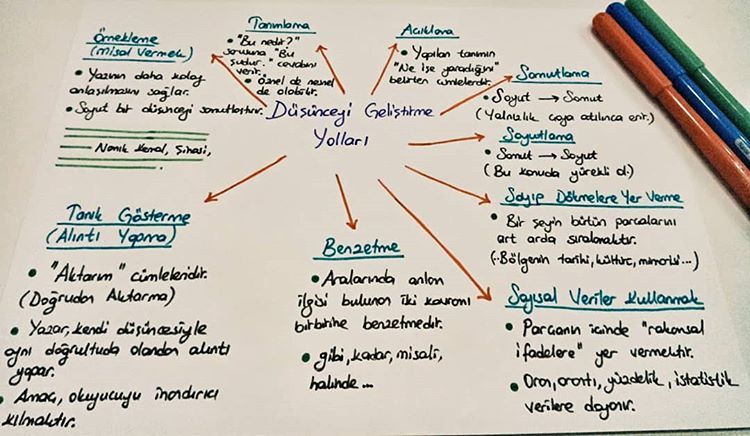 Örnekleme
(Misal Vermek)
• Yazının daha kolay
anlaşılmasını sağlar.
• Soyut bir düşünceyi somutlaştırır.
Namık Kemal, Şinasi,
Tanımlama
• "Bu nedir?"
sorusuna "Bu
şudur." cevabını
verir.
• Öznel de nesnel
de olabilir.
Açıklama
• Yapılan tanımın
"Ne işe yaradığını"
belirten cümlelerdir.
Düşünceyi Geliştirme
Yolları
Somutlama
• Soyut → Somut
(Yalnızlık çaya atılınca erir.)
Soyutlama
• Somut → Soyut
(Bu konuda yürekli ol.)
Sayıp Dökmelere Yer Verme
• Bir şeyin bütün parçalarını
art arda sıralamaktır.
(..Bölgenin tarihi, kültürü, mimarisi...)
Tanık Gösterme
(Alıntı Yapma)
• "Aktarım" cümleleridir.
(Doğrudan Aktarma)
• Yazar, kendi düşüncesiyle
aynı doğrultuda olandan alıntı
yapar.
• Amaç, okuyucuyu inandırıcı
kılmaktır.
Benzetme
• Aralarında anlam
ilgisi bulunan iki kavramı
birbirine benzetmedir.
• gibi, kadar, misali,
halinde...
Sayısal Veriler Kullanmak
• Parçanın içinde "rakamsal
ifadelere" yer vermektir.
• Oran, orantı, yüzdelik, istatistik
verilere dayanır.